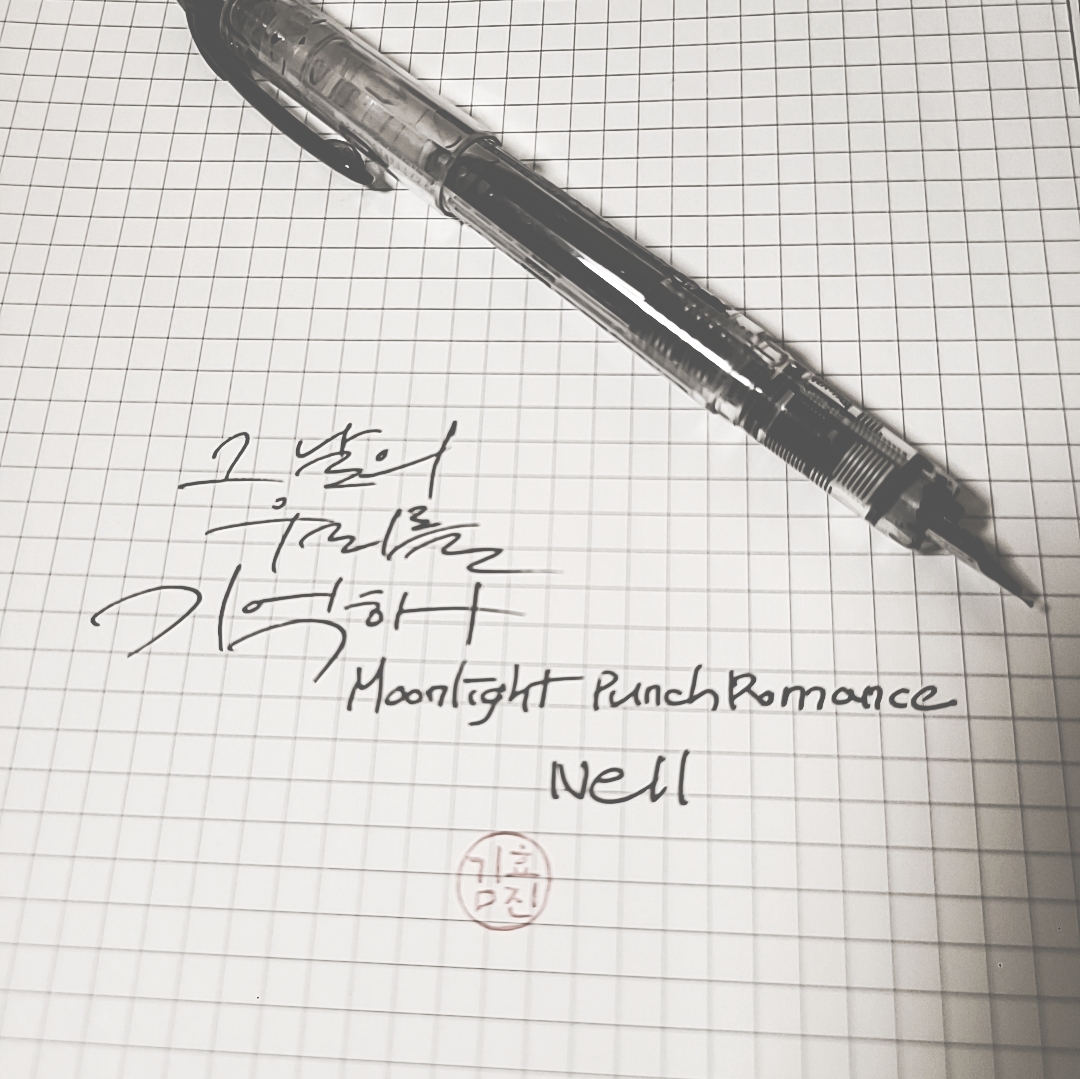 그 날의
우리를
기억하
Moonlight Punch Romance
Nell
김효진